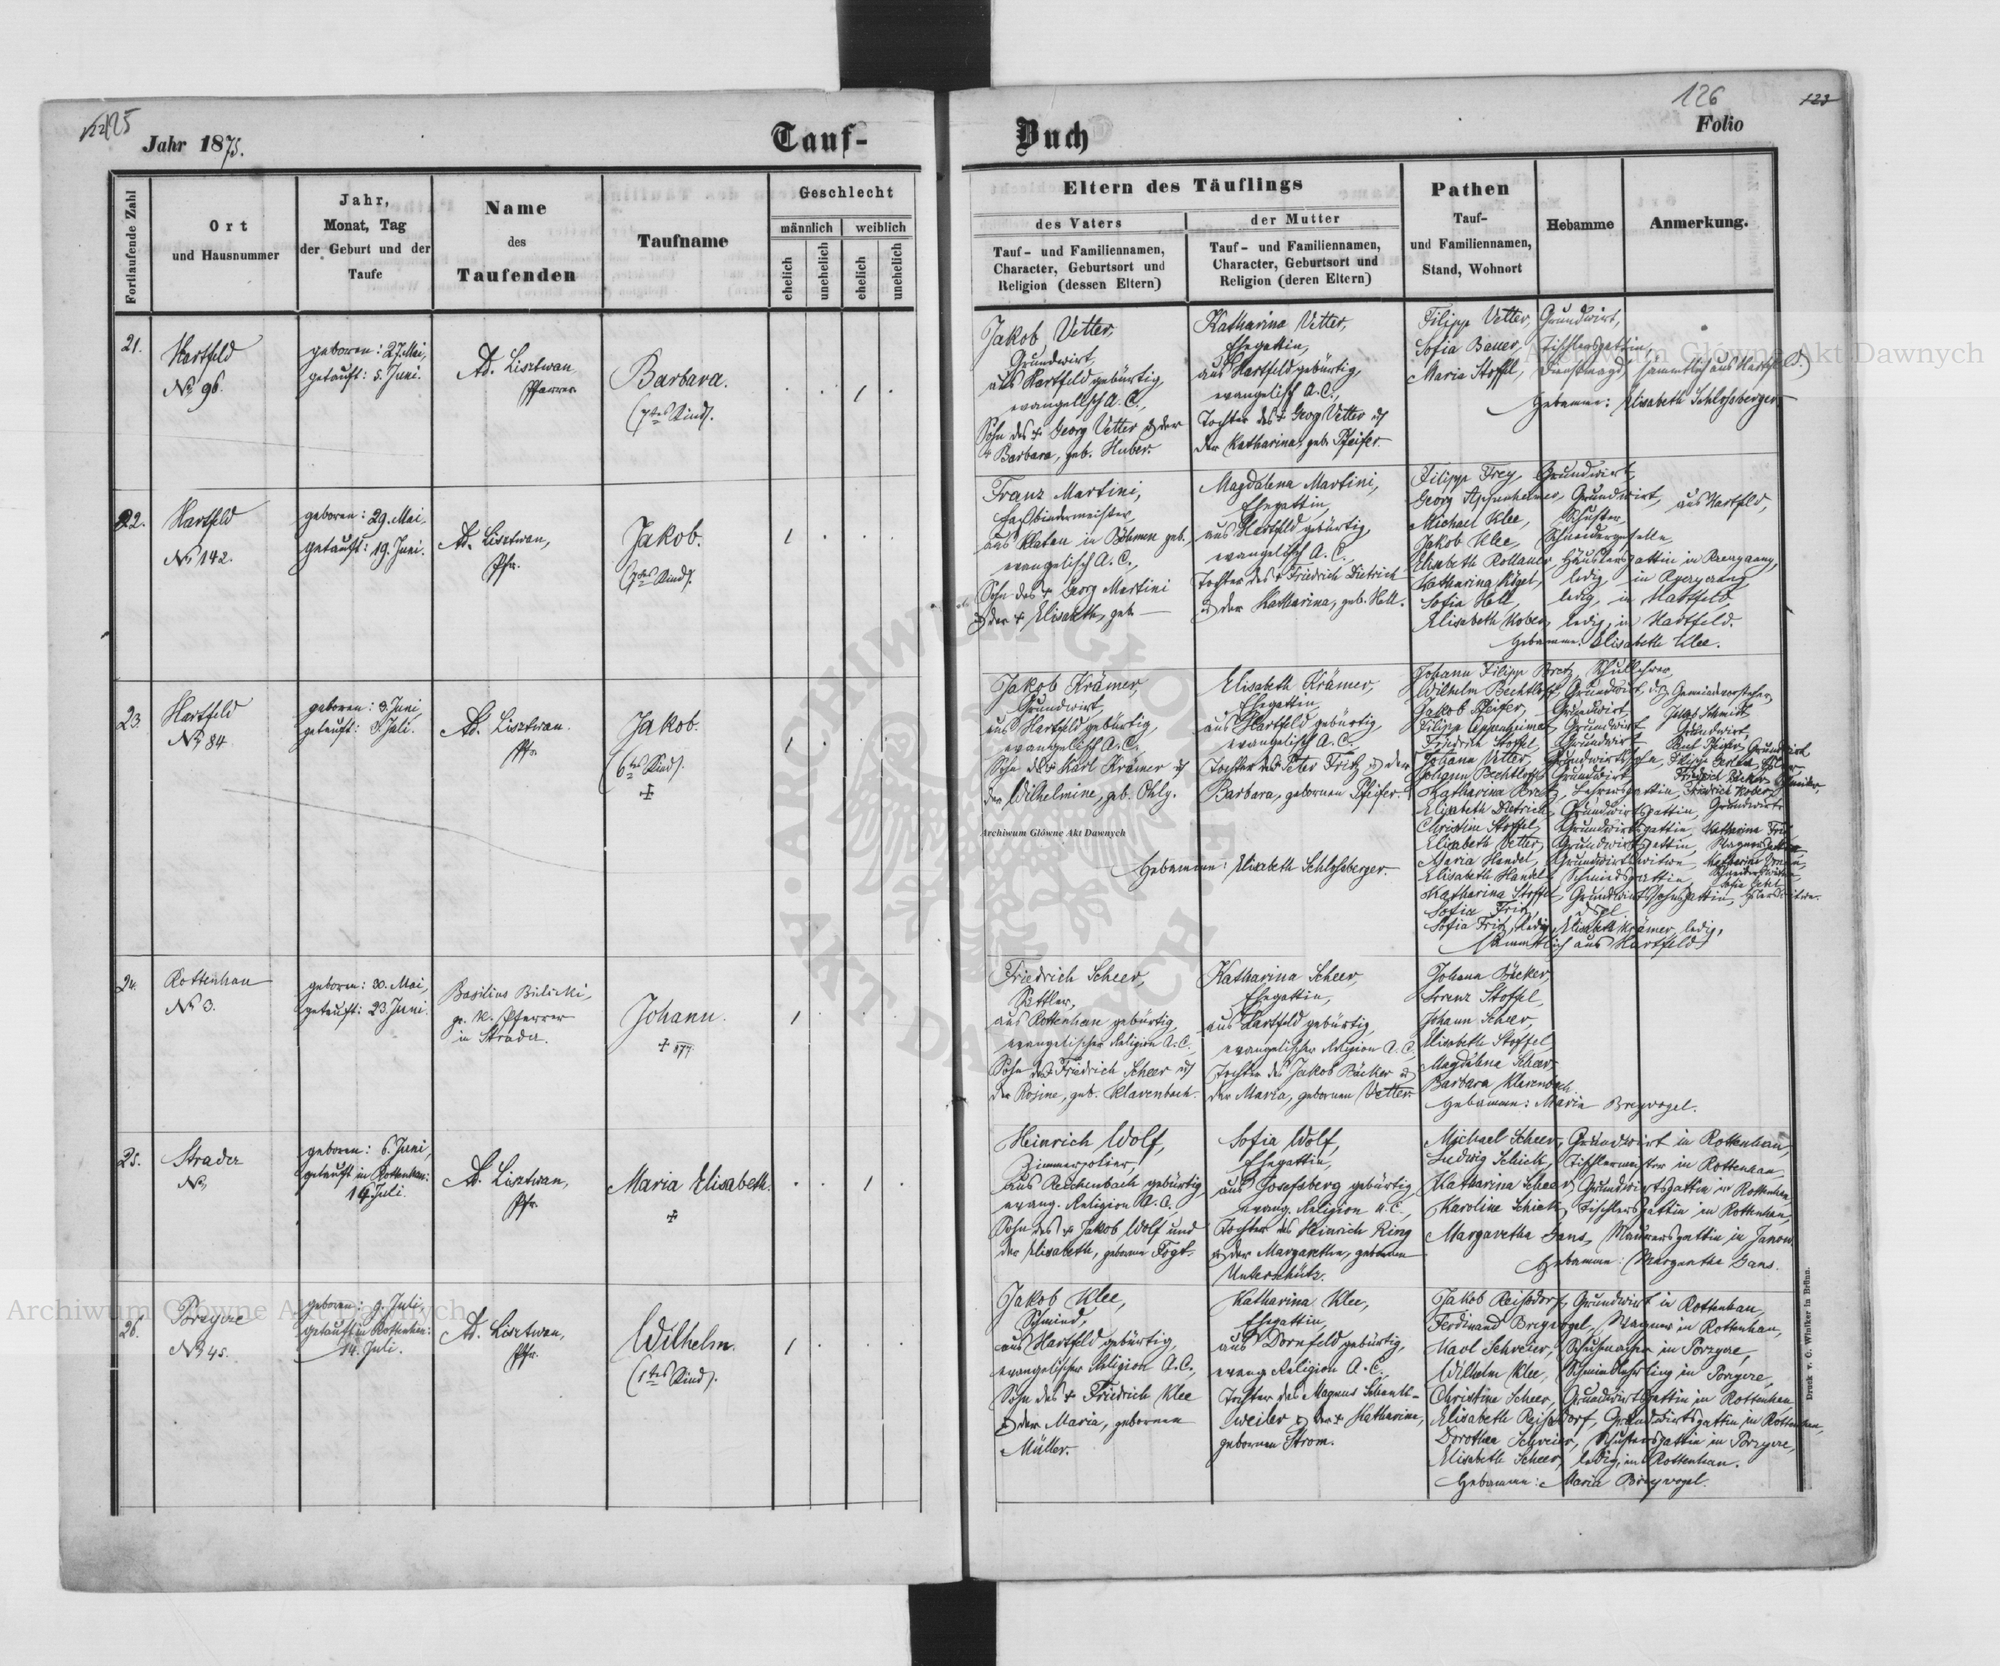 125
Jahr 1875.
Tauf-
Buch
126
123
Folio
Fortlaufende Zahl
Ort
und Hausnummer
Jahr,
Monat, Tag
der Geburt und der
Taufe
Name
des
Taufenden
Taufname
Geschlecht
männlich
weiblich
ehelich
unehelich
ehelich
unehelich
Eltern des Täuflings
des Vaters
Tauf- und Familiennamen,
Character, Geburtsort und
Religion (dessen Eltern)
der Mutter
Tauf- und Familiennamen,
Character, Geburtsort und
Religion (deren Eltern)
Pathen
Tauf-
und Familiennamen,
Stand, Wohnort
Hebamme
Anmerkung.
21.
Hartfeld
No 96.
geboren: 27. Mai,
getauft: 5. Juni.
Ad. Lisztwan
Pfarrer
Barbara.
(7tes Kind).
Jakob Vetter,
Grundwirt,
aus Hartfeld gebürtig,
evangelisch A. C.,
Sohn des + Georg Vetter & der
+ Barbara, geb. Huber.
Katharina Vetter,
Ehegattin,
aus Hartfeld gebürtig,
evangelisch A. C.,
Tochter des + Georg Vetter &
der Katharina, geb. Pfeifer.
Filipp Vetter, Grundwirt,
Sofia Bauer, Tischlersgattin,
Maria Stoffel, Dienstmagd, sämmtlich aus Hartfeld.
Hebamme: Elisabeth Schlossberger
22.
Hartfeld
No 142.
geboren: 29. Mai,
getauft: 19. Juni.
Ad. Lisztwan,
Pfr.
Jakob.
(7tes Kind).
Franz Martini,
Faßbindermeister,
aus Klatau in Böhmen geb.,
evangelisch A. C.,
Sohn des + Georg Martini
& der + Elisabeth, geb. —
Magdalena Martini,
Ehegattin,
aus Hartfeld gebürtig,
evangelisch A. C.,
Tochter des + Friedrich Dietrich
& der Katharina, geb. Hell.
Filipp Frey, Grundwirt,
Georg Appenheimer, Grundwirt, aus Hartfeld,
Michael Klee, Schuster,
Jakob Klee, Schneidergeselle,
Elisabeth Rollauer, Häuslersgattin in
Katharina Kögel, ledig in
Sofia Hell, ledig in Hartfeld,
Elisabeth Kober, ledig, in Hartfeld.
Hebamme: Elisabeth Klee.
23.
Hartfeld
No 84.
geboren: 3. Juni,
getauft: 3. Juli.
Ad. Lisztwan.
Pfr.
Jakob.
(6tes Kind).
+
Jakob Krämer,
Grundwirt,
aus Hartfeld gebürtig,
evangelisch A. C.
Sohn des + Karl Krämer &
der Wilhelmine, geb. Ohlg.
Elisabeth Krämer,
Ehegattin,
aus Hartfeld gebürtig
evangelisch A. C.
Tochter des Peter Fritz & der
Barbara, gebornen Pfeifer.
Hebamme: Elisabeth Schlossberger.
Johann Filipp Bretz, Schullehrer,
Wilhelm Bechtloff, Grundwirt, Gemeindevorsteher,
Jakob Pfeifer, Grundwirt, Jakob Schmidt
Filipp Appenheimer, Grundwirt, Grundwirt,
Friedrich Stoffel, Grundwirt, Pfeifer, Grundwirt
Johann Vetter, Grundwirtssohn,
Johann Bechtloff, Grundwirt, Friedrich Bäcker,
Katharina Bretz, Lehrersgattin, Friedrich Kober,
Elisabeth Dietrich, Grundwirtsgattin, Grundwirte
Christine Stoffel, Grundwirtsgattin, Katharina
Elisabeth Vetter, Grundwirtsgattin,
Maria Handel, Grundwirtswitwe, Katharina
Elisabeth Handel, Schmiedsgattin,
Katharina Stoffel, Grundwirtssohnsgattin,
Sofia Fritz,
Sofia Fritz, ledig, Elisabeth Krämer, ledig,
sämmtlich aus Hartfeld
24.
Rottenhan
No 3.
geboren: 30. Mai,
getauft: 23. Juni.
Basilius Bilicki,
gr. k. Pfarrer
in Stradcz.
Johann.
+ 877
Friedrich Scheer,
Sattler,
aus Rottenhan gebürtig,
evangelischer Religion A. C.,
Sohn des Friedrich Scheer &
der Rosine, geb. Klarenbach.
Katharina Scheer,
Ehegattin,
aus Hartfeld gebürtig,
evangelischer Religion A. C.
Tochter des Jakob Bäcker &
der Maria, gebornen Vetter.
Johann Bäcker,
Lorenz Stoffel,
Johann Scheer,
Elisabeth Stoffel
Magdalena Scheer
Barbara Klarenbach
Hebamme: Maria Breyvogel.
25.
Stradcz
No
geboren: 6. Juni,
getauft in Rottenhan:
14. Juli.
Ad. Lisztwan,
Pfr.
Maria Elisabeth.
+
Heinrich Wolf,
Zimmerpolier,
aus Reichenbach gebürtig
evang. Religion A. C.,
Sohn des + Jakob Wolf und
der Elisabeth, geborne Fogt.
Sofia Wolf,
Ehegattin,
aus Josefsberg gebürtig
evang. Religion A. C.,
Tochter des Heinrich Ring
& der Margaretha, gebornen
Unterschütz.
Michael Scheer, Grundwirt in Rottenhan,
Ludwig Schick, Tischlermeister in Rottenhan,
Katharina Scheer, Grundwirtsgattin in Rottenhan
Karoline Schick, Tischlersgattin in Rottenhan,
Margaretha Gans, Maurersgattin in Janow.
Hebamme: Margaretha Gans.
26.
No 45.
geboren: 9. Juli,
getauft in Rottenhan:
14. Juli.
Ad. Lisztwan,
Pfr.
Wilhelm.
(1tes Kind).
Jakob Klee,
Schmied,
aus Hartfeld gebürtig,
evangelischer Religion A. C.,
Sohn des + Friedrich Klee
& der Maria, gebornen
Müller.
Katharina Klee,
Ehegattin,
aus Dornfeld gebürtig,
evang. Religion A. C.,
Tochter des Magnus Schank-
weiler & der + Katharina,
gebornen Strom.
Jakob Reissdorf, Grundwirt in Rottenhan,
Ferdinand Breyvogel, Wagner in Rottenhan,
Karl Schreier, Schuhmacher in Porzycze,
Wilhelm Klee, Schmiedlehrling in Porzycze,
Christine Scheer, Grundwirtsgattin in Rottenhan
Elisabeth Reissdorf, Grundwirtsgattin in Rottenhan,
Dorothea Schreier, Schustersgattin in Porzycze,
Elisabeth Scheer, ledig, in Rottenhan.
Hebamme: Maria Breyvogel.
Druck v. C. Winiker in Brünn.
Archiwum Główne Akt Dawnych
Archiwum Główne Akt Dawnych
Archiwum Główne Akt Dawnych
ARCHIWUM GŁÓWNE AKT DAWNYCH